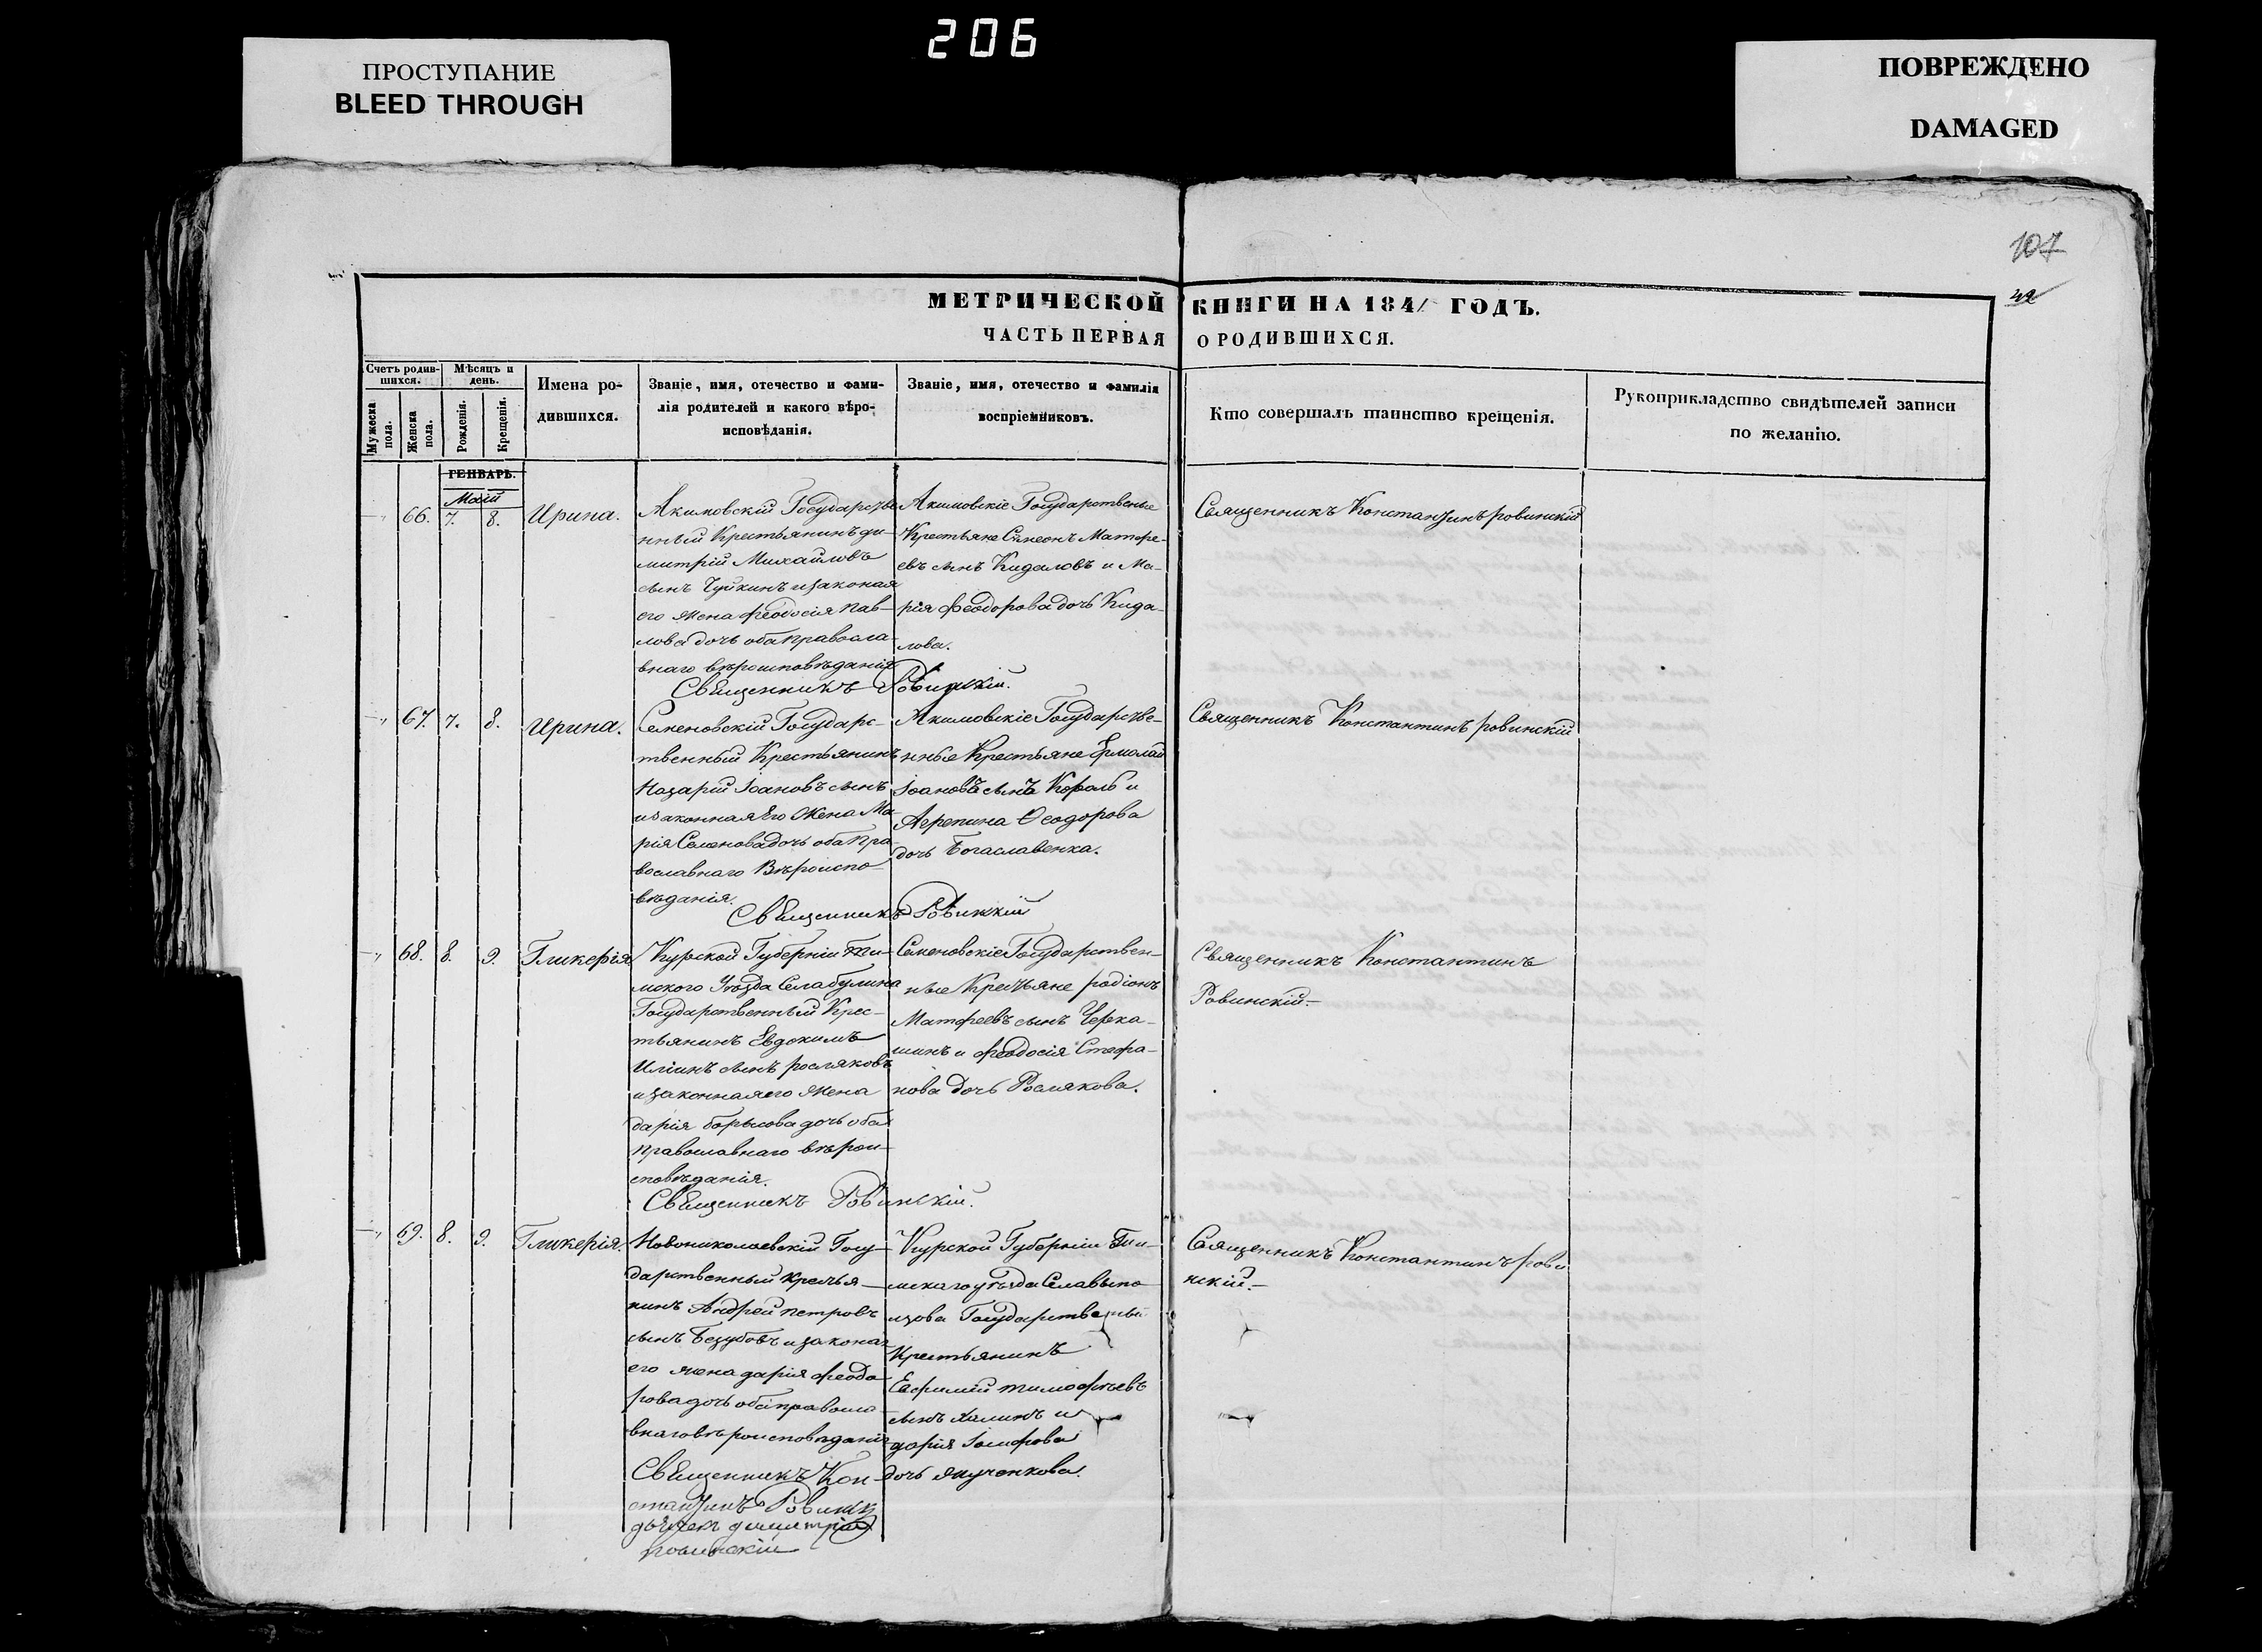 206
ПРОСТУПАНИЕ
BLEED THROUGH
ПОВРЕЖДЕНО
DAMAGED
107
42
МЕТРИЧЕСКОЙ КНИГИ НА 1841 ГОДЪ.
ЧАСТЬ ПЕРВАЯ О РОДИВШИХСЯ.
Счетъ родив-
шихся.
Мужеска пола.
Женска пола.
Мѣсяцъ и
день.
Рожденія.
Крещенія.
Имена ро-
дившихся.
Званіе, имя, отечество и фами-
лія родителей и какого вѣро-
исповѣданія.
Званіе, имя, отечество и фамилія
воспріемниковъ.
Кто совершалъ таинство крещенія.
Рукоприкладство свидѣтелей записи
по желанію.
ГЕНВАРЬ.
Маій
66. 7. 8. Ирина.
Акимовскій Государстве
нный Крестьянинъ ди-
митрій Михайловъ
сынъ Чуйкинъ изаконая
его жена феодосія Пав-
лова дочь оба правосла-
внаго вѣроисповѣданія
Акимовскіе Государственые
Крестьяне Симеонъ Матфе-
евъ сынъ Кидаловъ и Ма-
рія феодорова дочь Кида-
лова.
Священникъ Константинъ ровинскій
Священникъ Ровинскій.
67. 7. 8. Ирина.
Семеновскій Государс-
твенный Крестьянинъ
Назарій Іоановъ сынъ
изаконная Его Жена Ма
рія Семенова дочь оба Пра-
вославнаго Вѣроиспо-
вѣданія.
Акимовскіе Государстве-
нные Крестьяне Ермолай
Іоановъ сынъ Король и
Агрепина Ѳеодорова
дочь Богаславенка.
Священникъ Константинъ ровинскій
Священникъ Ровинскій
68. 8. 9. Гликерія
Курской Губерніи Ти-
мского Уѣзда Села
Государственный Крес-
тьянинъ Евдокимъ
Иліинъ сынъ росляковъ
изаконная его жена
дарія борисова дочь оба
православнаго вѣрои-
сповѣданія.
Семеновскіе Государствен-
ные Крестьяне родіонъ
Матфеевъ сынъ Черка-
шинъ и феодосія Стефа-
нова дочь Рослякова.
Священникъ Константинъ
Ровинскій.
Священникъ Ровинскій.
69. 8. 9. Гликерія.
Новониколаевскій Госу-
дарственный крестья-
нинъ Андрей петровъ
сынъ Беззубовъ изаконая
его жена дарія феодо-
рова дочь оба правосла-
внаго вѣроисповѣданія
Курской Губерніи Ти-
мскаго уѣзда Села
Государственый
Крестьянинъ
Евфимій тимофѣевъ
сынъ и
дарія Іосифова
дочь
Священникъ Константинъ рови
нскій.
Священникъ Кон-
стантинъ Ровинск
дьячекъ димитрій